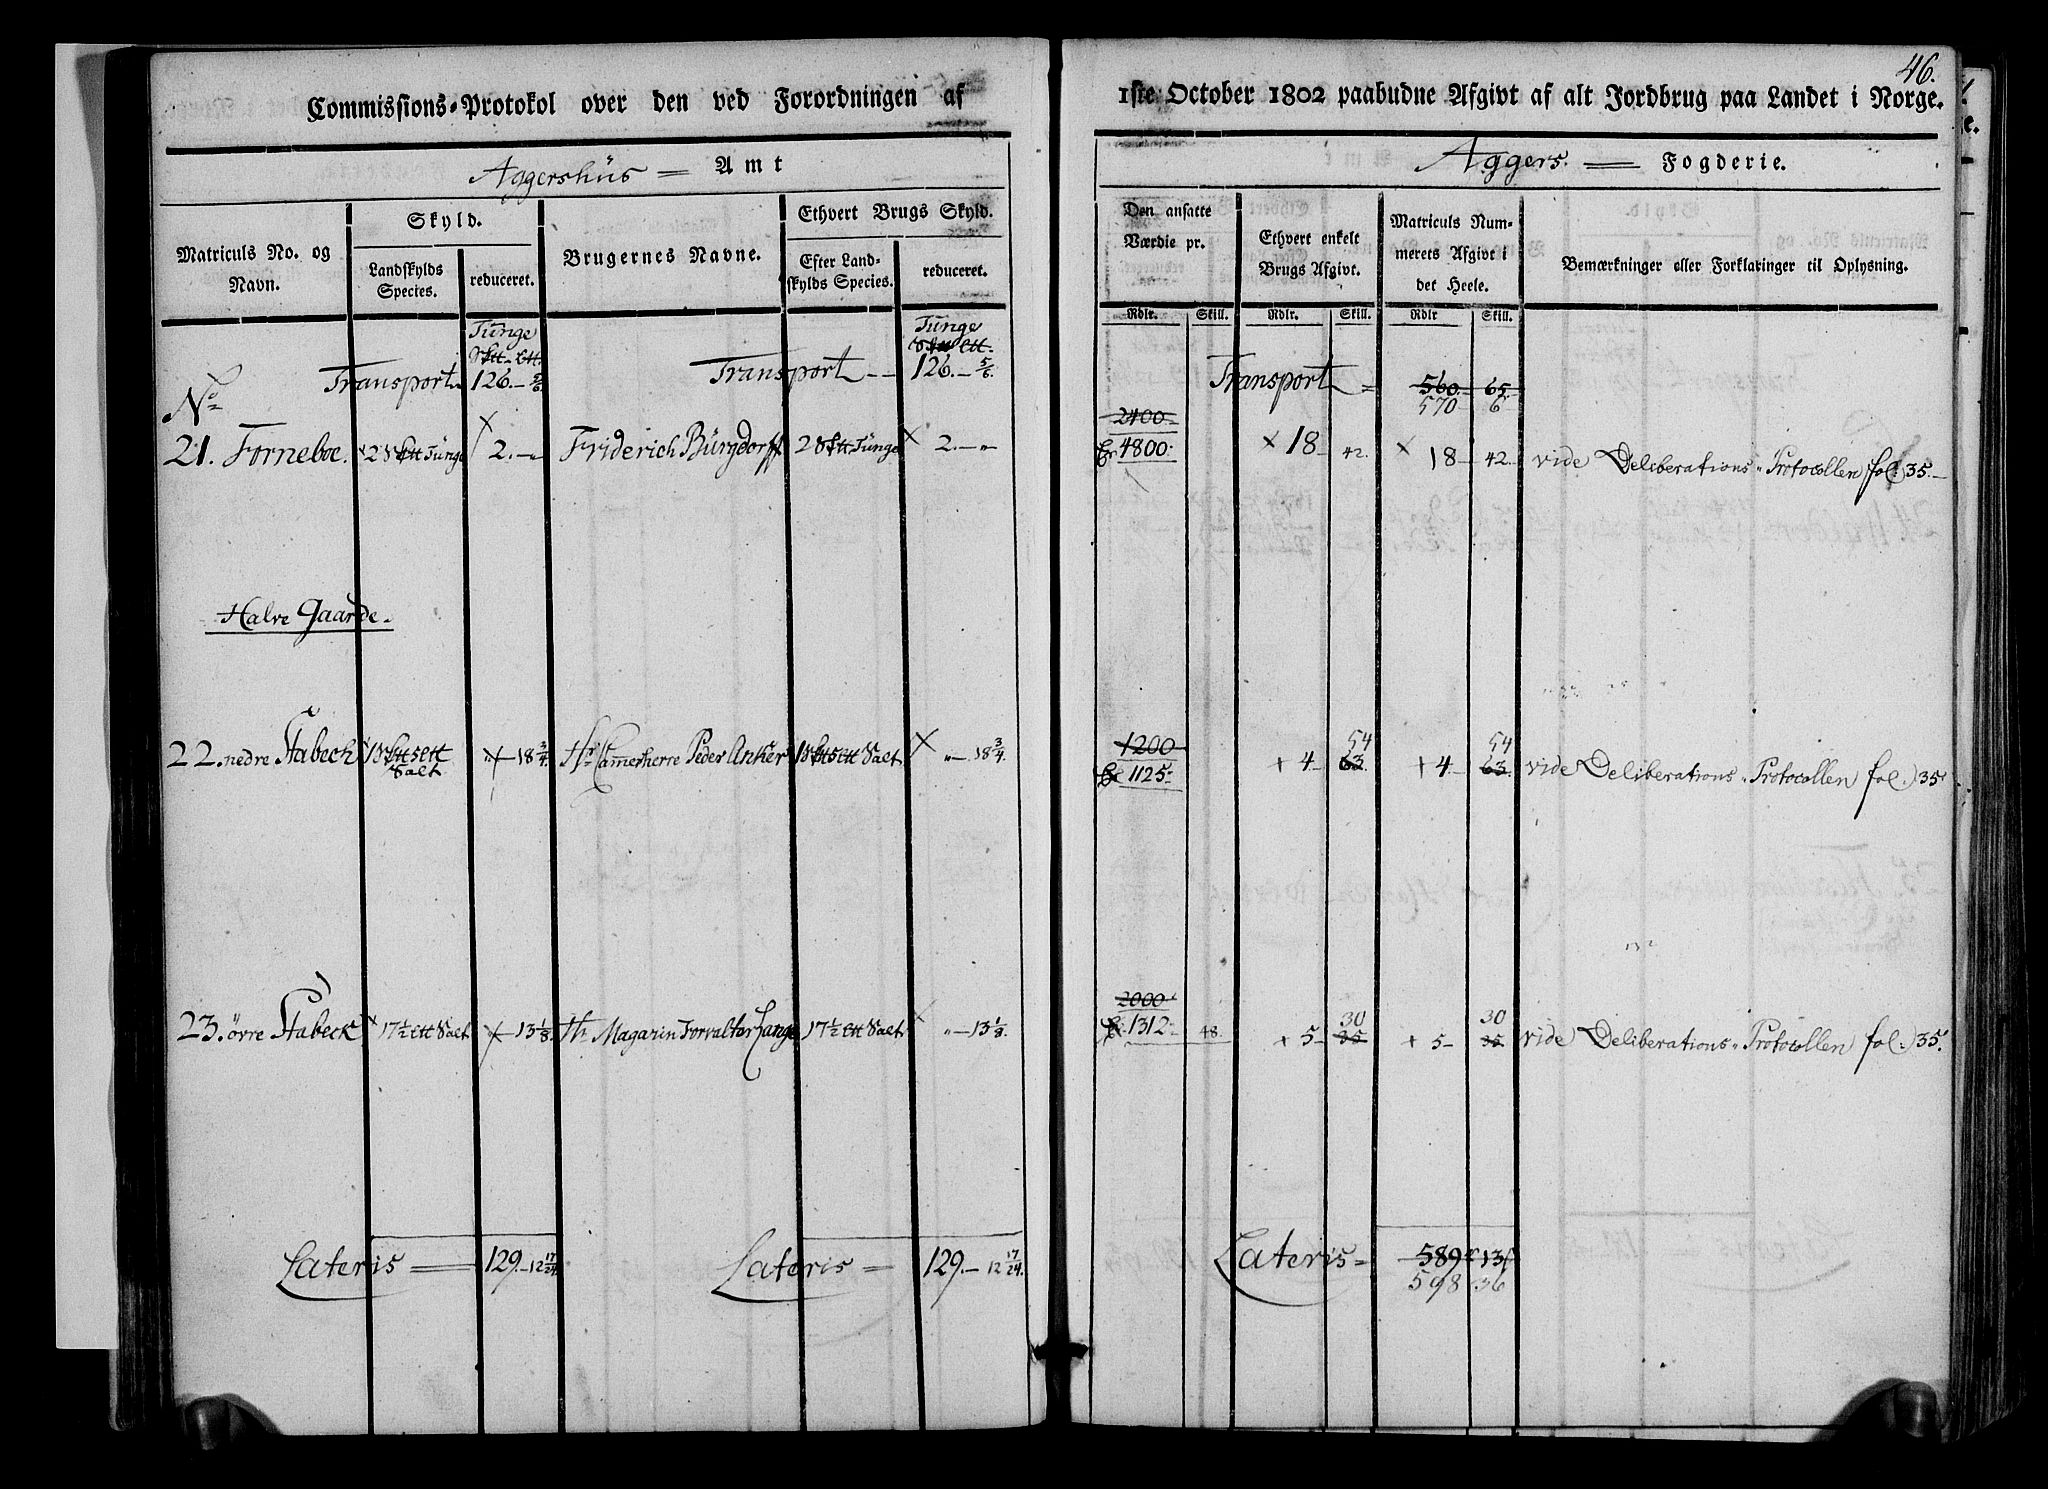 46.
Commissions-Protokol over den ved Forordningen af 1ste October 1802 paabudne Afgivt af alt Jordbrug paa Landet i Norge.
Aggershüs = Amt
Aggers. = Fogderie.
Matriculs No. og Navn.
Skyld.
Landskylds Species.
reduceret.
Brugernes Navne.
Ethvert Brugs Skyld.
Efter Landskylds Species.
reduceret.
Den ansatte Værdie pr.
Ethvert enkelt Brugs Afgivt.
Matriculs Nummerets Afgivt i det Heele.
Bemærkninger eller Forklaringer til Oplysning.
Rdlr. Skill. Rdlr. Skill. Rdlr Skill.
Tunge Tunge
Transport 126.- 5/6 Transport -- 126.- 5/6. Transport = 560. 65.
570 6
No
2400
21. Forneboe. 2 Sktt Tünge 2.-„ Friderich Bürgdorff 2 Sktt Tünge 2.-„ 4800. 18 42. 18 42. vide Deliberations-Protocollen fol: 35.-
Halve Gaarde.
1200 54 54
22. nedre Stabeck 1 Sktt 5 Ett Salt „-18 3/4. Hr Camerherre Peder Anker 1 Sktt 5 Ett Salt „-18 3/4. 1125. 4 63. 4. 63. vide Deliberations-Protocollen fol: 35
2000 30 30
23. övre Stabeck 17 1/2 Ett Salt „-13 1/8. Hr Magazin Forvalter Lange 17 1/2 Ett Salt „-13 1/8. 1312. 48. 5 35 5 35 vide Deliberations-Protocollen fol: 35.
Lateris = 129.-12 17/24. Lateris = 129.-12 17/24. Lateris = 589 13
598 36